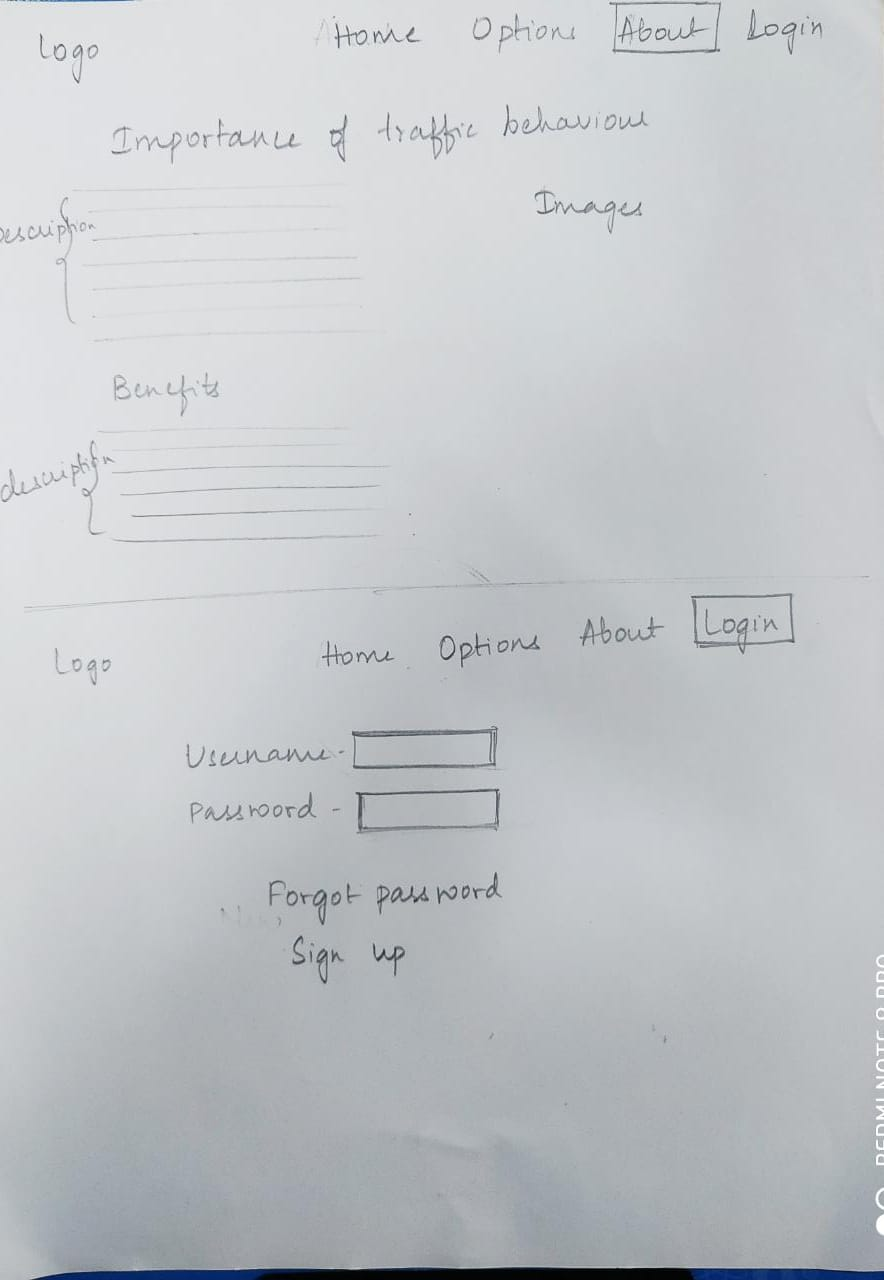 Logo Home Options About Login
Importance of traffic behaviour
Description
Images
Benefits
description
Logo Home Options About Login
Username -
Password -
Forgot password
Sign up
REDMI NOTE 8 PRO